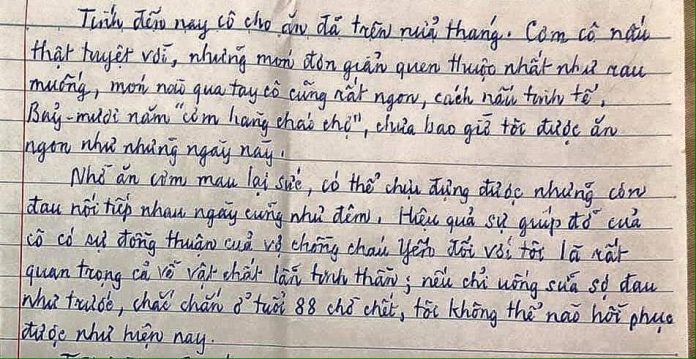 Tính đến nay cô cho ăn đã trên nửa tháng. Cơm cô nấu
thật tuyệt vời, những món đơn giản quen thuộc nhất như rau
muống, món nào qua tay cô cũng rất ngon, cách nấu tinh tế.
Bảy-mươi năm "cơm hàng cháo chợ", chưa bao giờ tôi được ăn
ngon như những ngày này.
Nhờ ăn cơm mau lại sức, có thể chịu đựng được những cơn
đau nối tiếp nhau ngày cũng như đêm. Hiệu quả sự giúp đỡ của
cô có sự đồng thuận của vợ chồng cháu Yến đối với tôi là rất
quan trọng cả về vật chất lẫn tinh thần; nếu chỉ uống sữa sợ đau
như trước, chắc chắn ở tuổi 88 chờ chết, tôi không thể nào hồi phục
được như hiện nay.